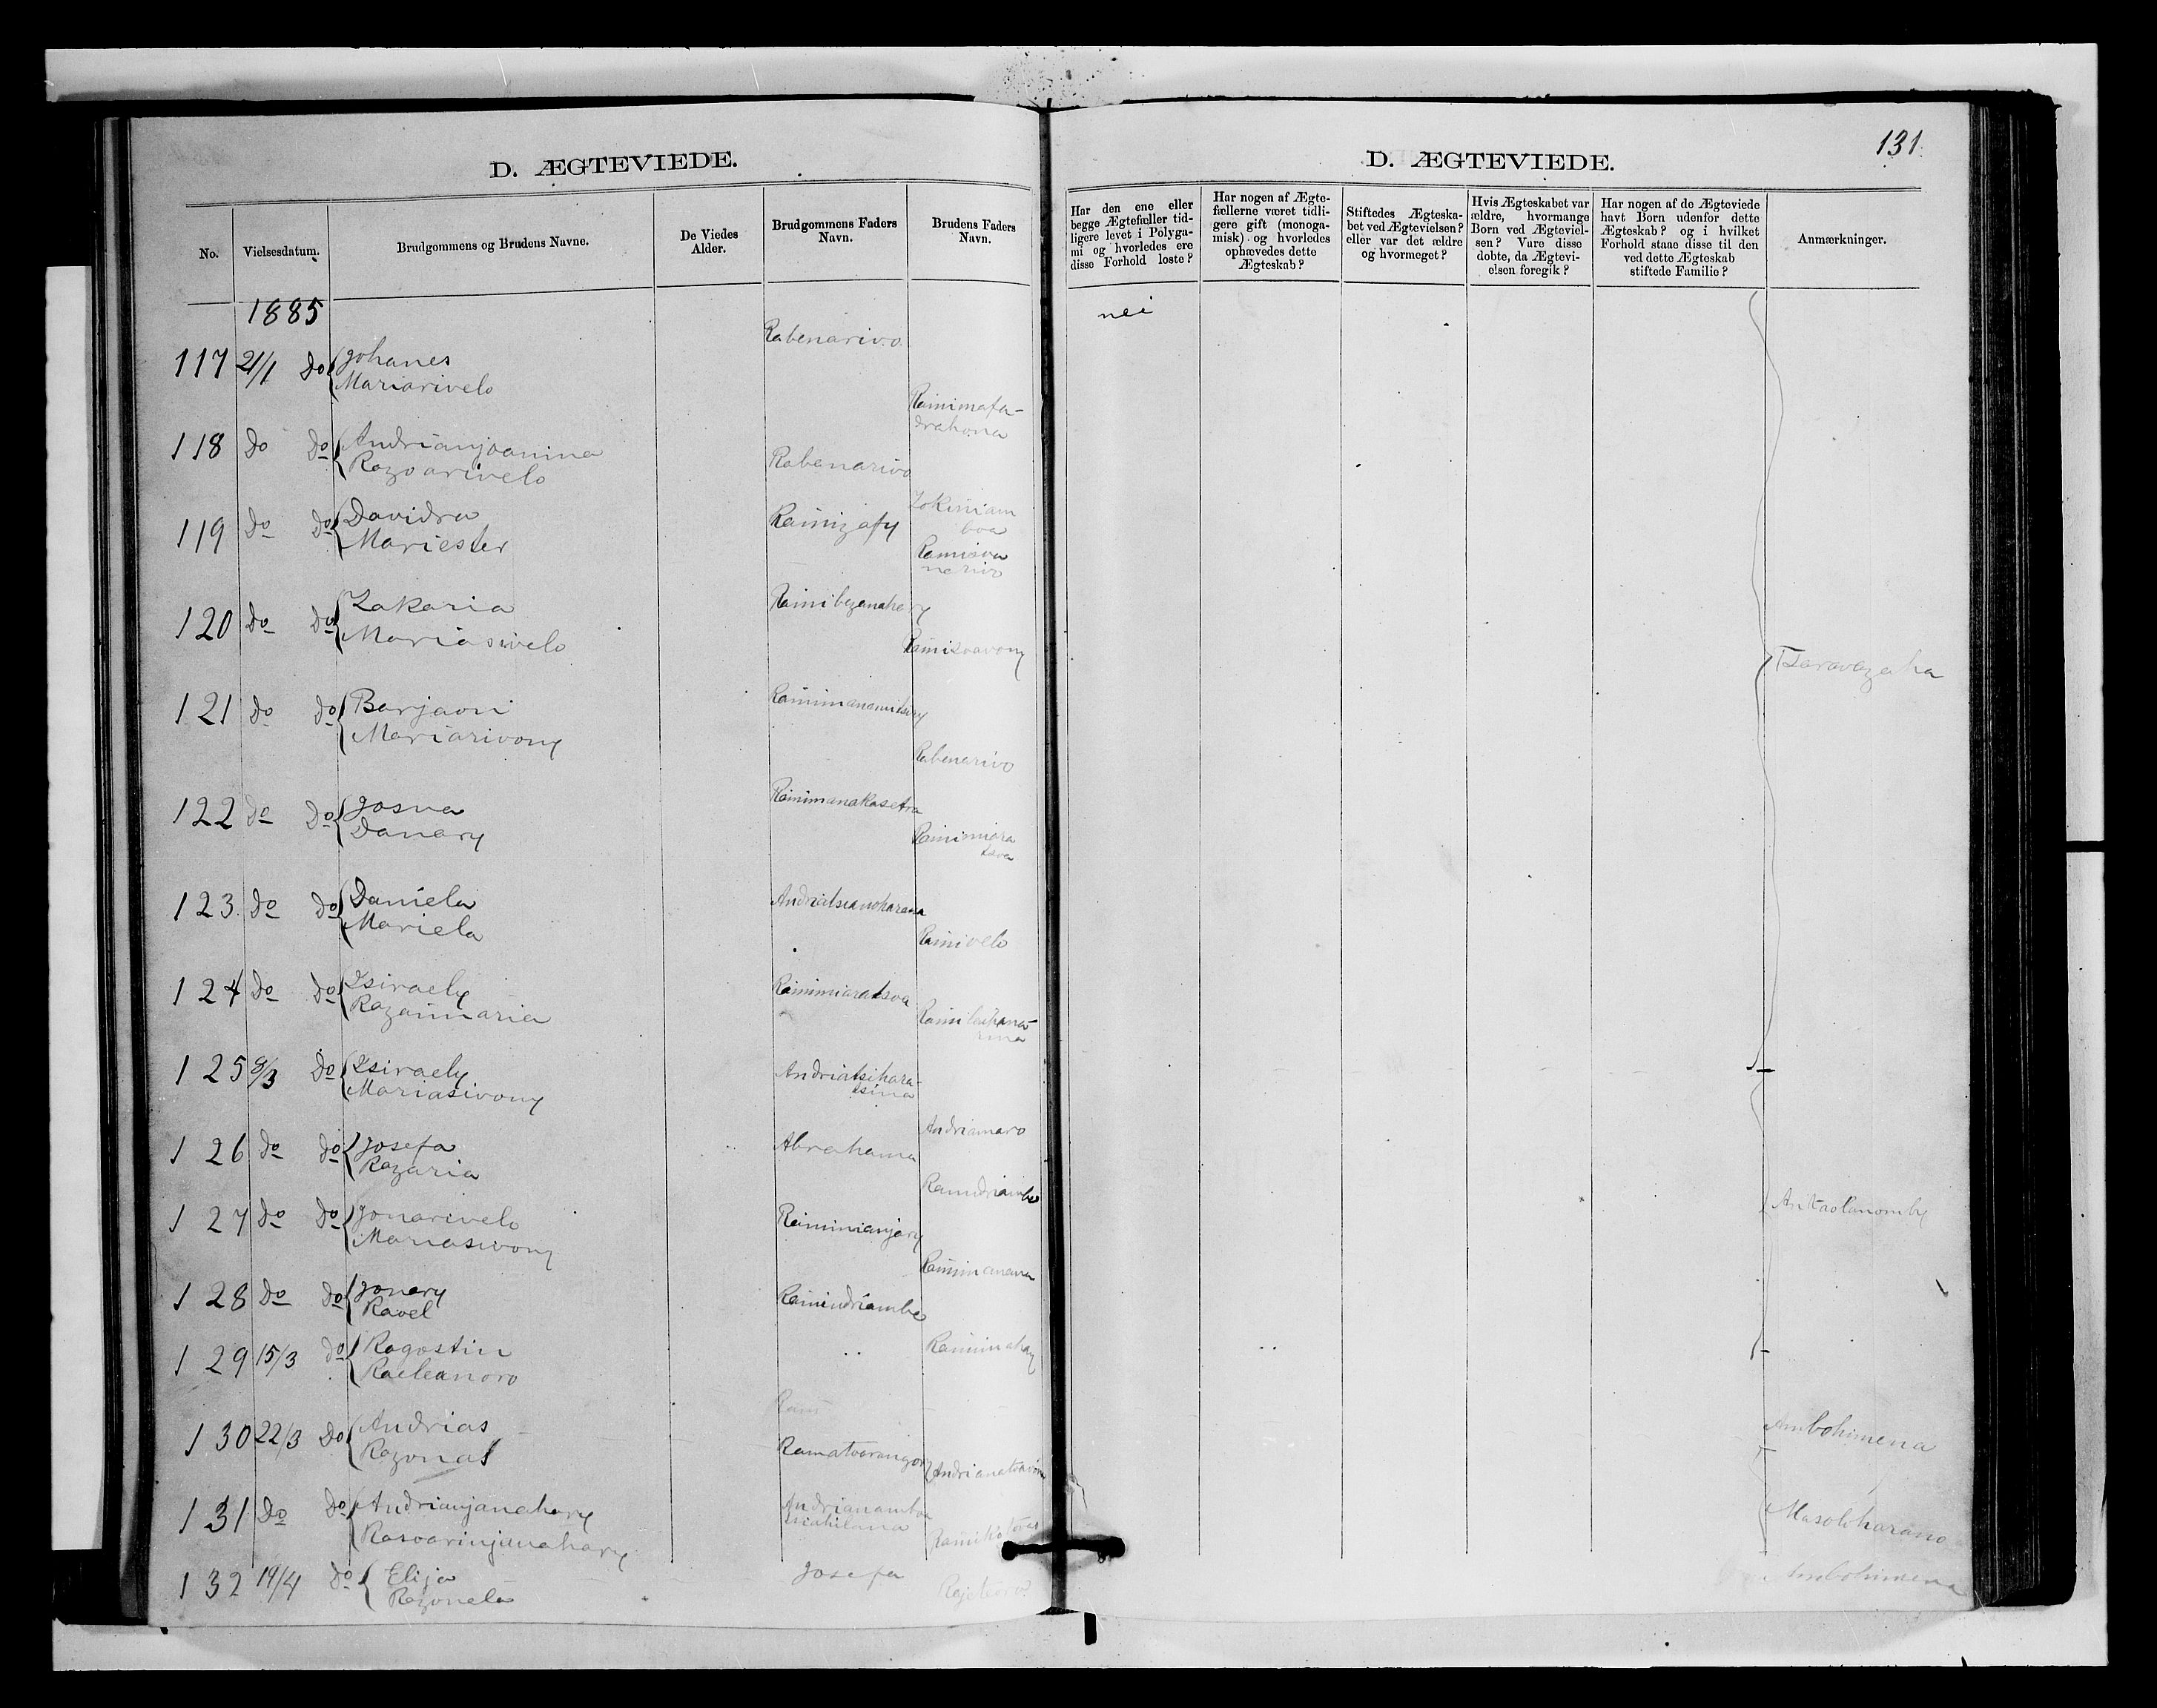 D. ÆGTEVIEDE.
No.
Vielsesdatum.
Brudgommens og Brudens Navne.
De Viedes
Alder.
Brudgommens Faders
Navn.
Brudens Faders
Navn.
1885
117 21/1 do Johanes
Mariarivelo
Rabenarivo
Rainimafa-
drahona
118 do do Andrianjoanina
Razoarivelo
Rabenarivo
119 do do Davidra
Mariester
Rainizafy
120 do do Zakaria
Mariasivelo
Rainibezanahary
Rainizoavony
121 do do Barjaoni
Mariarivony
Rabenarivo
122 do do Josua
Danary
Rainimanakasetra
123 do do Daniela
Mariela
Andriatsianoharana
Rainivelo
124 do do Isiraely
Razaimaria
Rainimiaratsoa
125 8/3 do Isiraely
Mariasivony
Andriatsihara-
tsina
Andriamaro
126 do do Josefa
Razaria
Abrahama
Rainidriambe
127 do do Jonarivelo
Mariasivony
Rainimianjary
Rainimanana
128 do do Jonary
Ravel
Rainidriambe
129 15/3 do Ragostin
Raeleanoro
130 22/3 do Andrias
Razonas
131 do do Andrianjanahary
Rasoarinjanahary
132 19/4 do Elija
Razonela
Josefa
D. ÆGTEVIEDE.
131
Har den ene eller
begge Ægtefæller tid-
ligere levet i Polyga-
mi og hvorledes ere
disse Forhold løste?
Har nogen af Ægte-
fællerne været tidli-
gere gift (monoga-
misk) og hvorledes
ophævedes dette
Ægteskab?
Stiftedes Ægteska-
bet ved Ægtevielsen?
eller var det ældre
og hvormeget?
Hvis Ægteskabet var
ældre, hvormange
Børn ved Ægteviel-
sen? Vare disse
døbte, da Ægtevi-
elsen foregik?
Har nogen af de Ægteviede
havt Børn udenfor dette
Ægteskab? og i hvilket
Forhold staae disse til den
ved dette Ægteskab
stiftede Familie?
Anmærkninger.
nei
Tsaravazaha
Antaolanomby
Ambohimena
Masoloharano
Ambohimena